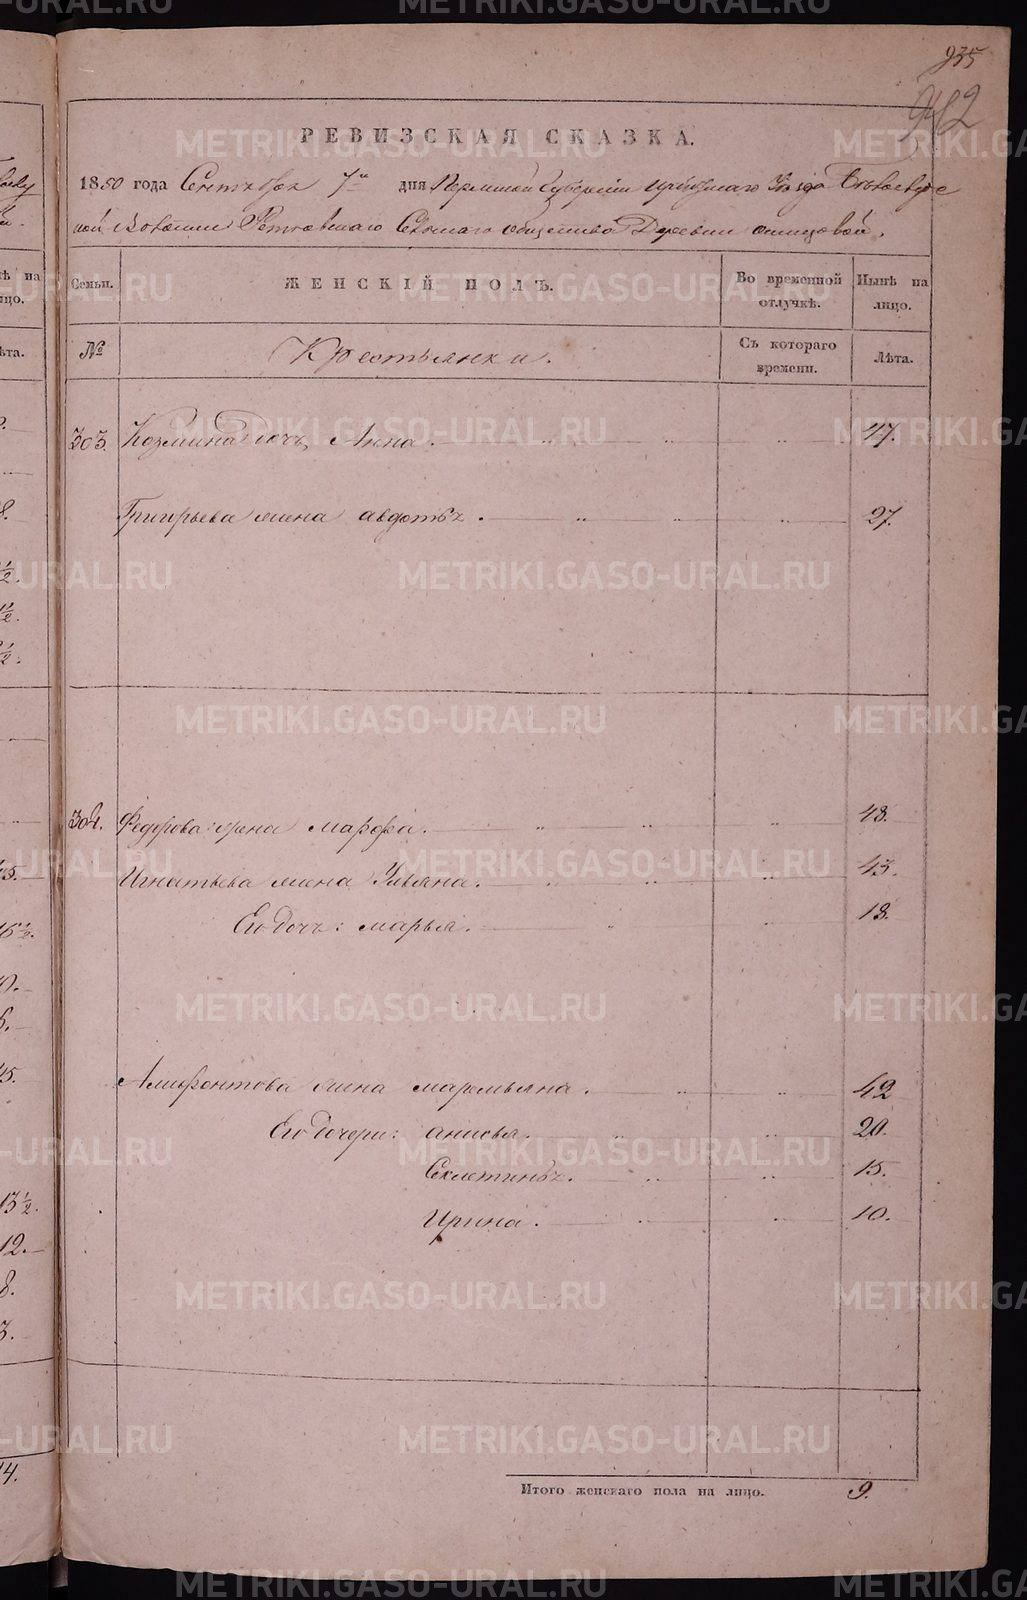 935
942
РЕВИЗСКАЯ СКАЗКА.
1850 года Сентября 7го дня Пермской Губернии Уезда
ной Волости Сельскаго общества Деревни
Семьи. ЖЕНСКІЙ ПОЛЪ. Во временной отлучкѣ. Нынѣ на лицо.
№ Крестьянки. Съ котораго времени. Лѣта.
303. Козмина дочь, Анна. 47.
Григорьева жена авдотья. 27.
304. Федорова жена марфа. 48.
Игнатьева жена Ульяна. 43.
Его дочь: марья. 18.
жена маремьяна. 42
Его дочери: анисья. 20.
15.
Ирина. 10.
Итого женскаго пола на лицо. 9.
METRIKI.GASO-URAL.RU